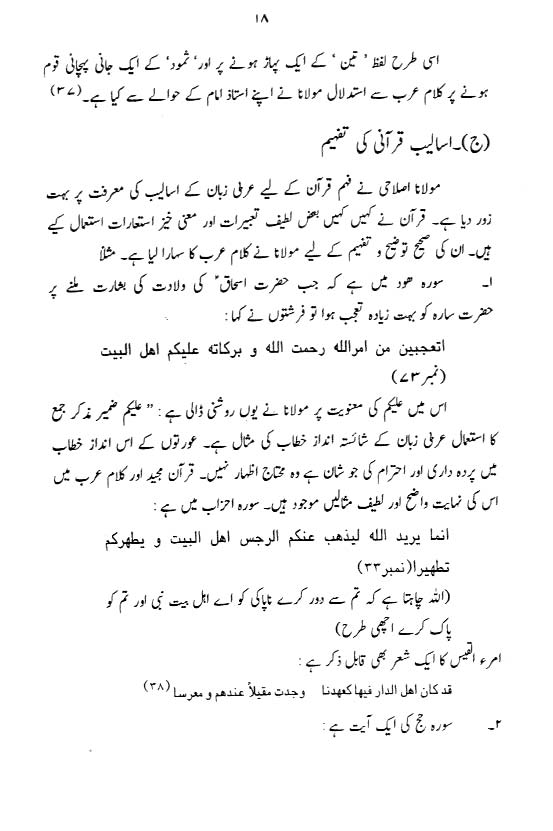 ۱۸
اسی طرح لفظ ’ تین ‘ کے ایک پہاڑ ہونے پر اور ’ ثمود ‘ کے ایک جانی پہچانی قوم
ہونے پر کلام عرب سے استدلال مولانا نے اپنے استاذ امام کے حوالے سے کیا ہے۔(۳۷)
(ج)۔اسالیب قرآنی کی تفہیم
مولانا اصلاحی نے فہم قرآن کے لیے عربی زبان کے اسالیب کی معرفت پر بہت
زور دیا ہے۔ قرآن نے کہیں کہیں بعض لطیف تعبیرات اور معنی خیز استعارات استعمال کیے
ہیں۔ ان کی صحیح توضیح و تفہیم کے لیے مولانا نے کلام عرب کا سہارا لیا ہے۔ مثلاً
۱۔ سورہ ھود میں ہے کہ جب حضرت اسحاقؑ کی ولادت کی بشارت ملنے پر
حضرت سارہ کو بہت زیادہ تعجب ہوا تو فرشتوں نے کہا :
اتعجبین من امرالله رحمت الله و برکاته علیکم اهل البیت
(نمبر ۷۳)
اس میں علیکم کی معنویت پر مولانا نے یوں روشنی ڈالی ہے : ” علیکم ضمیر مذکر جمع
کا استعمال عربی زبان کے شائستہ انداز خطاب کی مثال ہے۔ عورتوں کے اس انداز خطاب
میں پردہ داری اور احترام کی جو شان ہے وہ محتاج اظہار نہیں۔ قرآن مجید اور کلام عرب میں
اس کی نہایت واضح اور لطیف مثالیں موجود ہیں۔ سورہ احزاب میں ہے :
انما یرید الله لیذهب عنکم الرجس اهل البیت و یطهرکم
تطهیرا(نمبر۳۳)
(اللہ چاہتا ہے کہ تم سے دور کرے ناپاکی کو اے اہل بیت نبی اور تم کو
پاک کرے اچھی طرح)
امرء القیس کا ایک شعر بھی قابل ذکر ہے :
قد کان اهل الدار فیها کعهدنا وجدت مقیلاً عندهم و معرسا (۳۸)
۲۔ سورہ حج کی ایک آیت ہے :